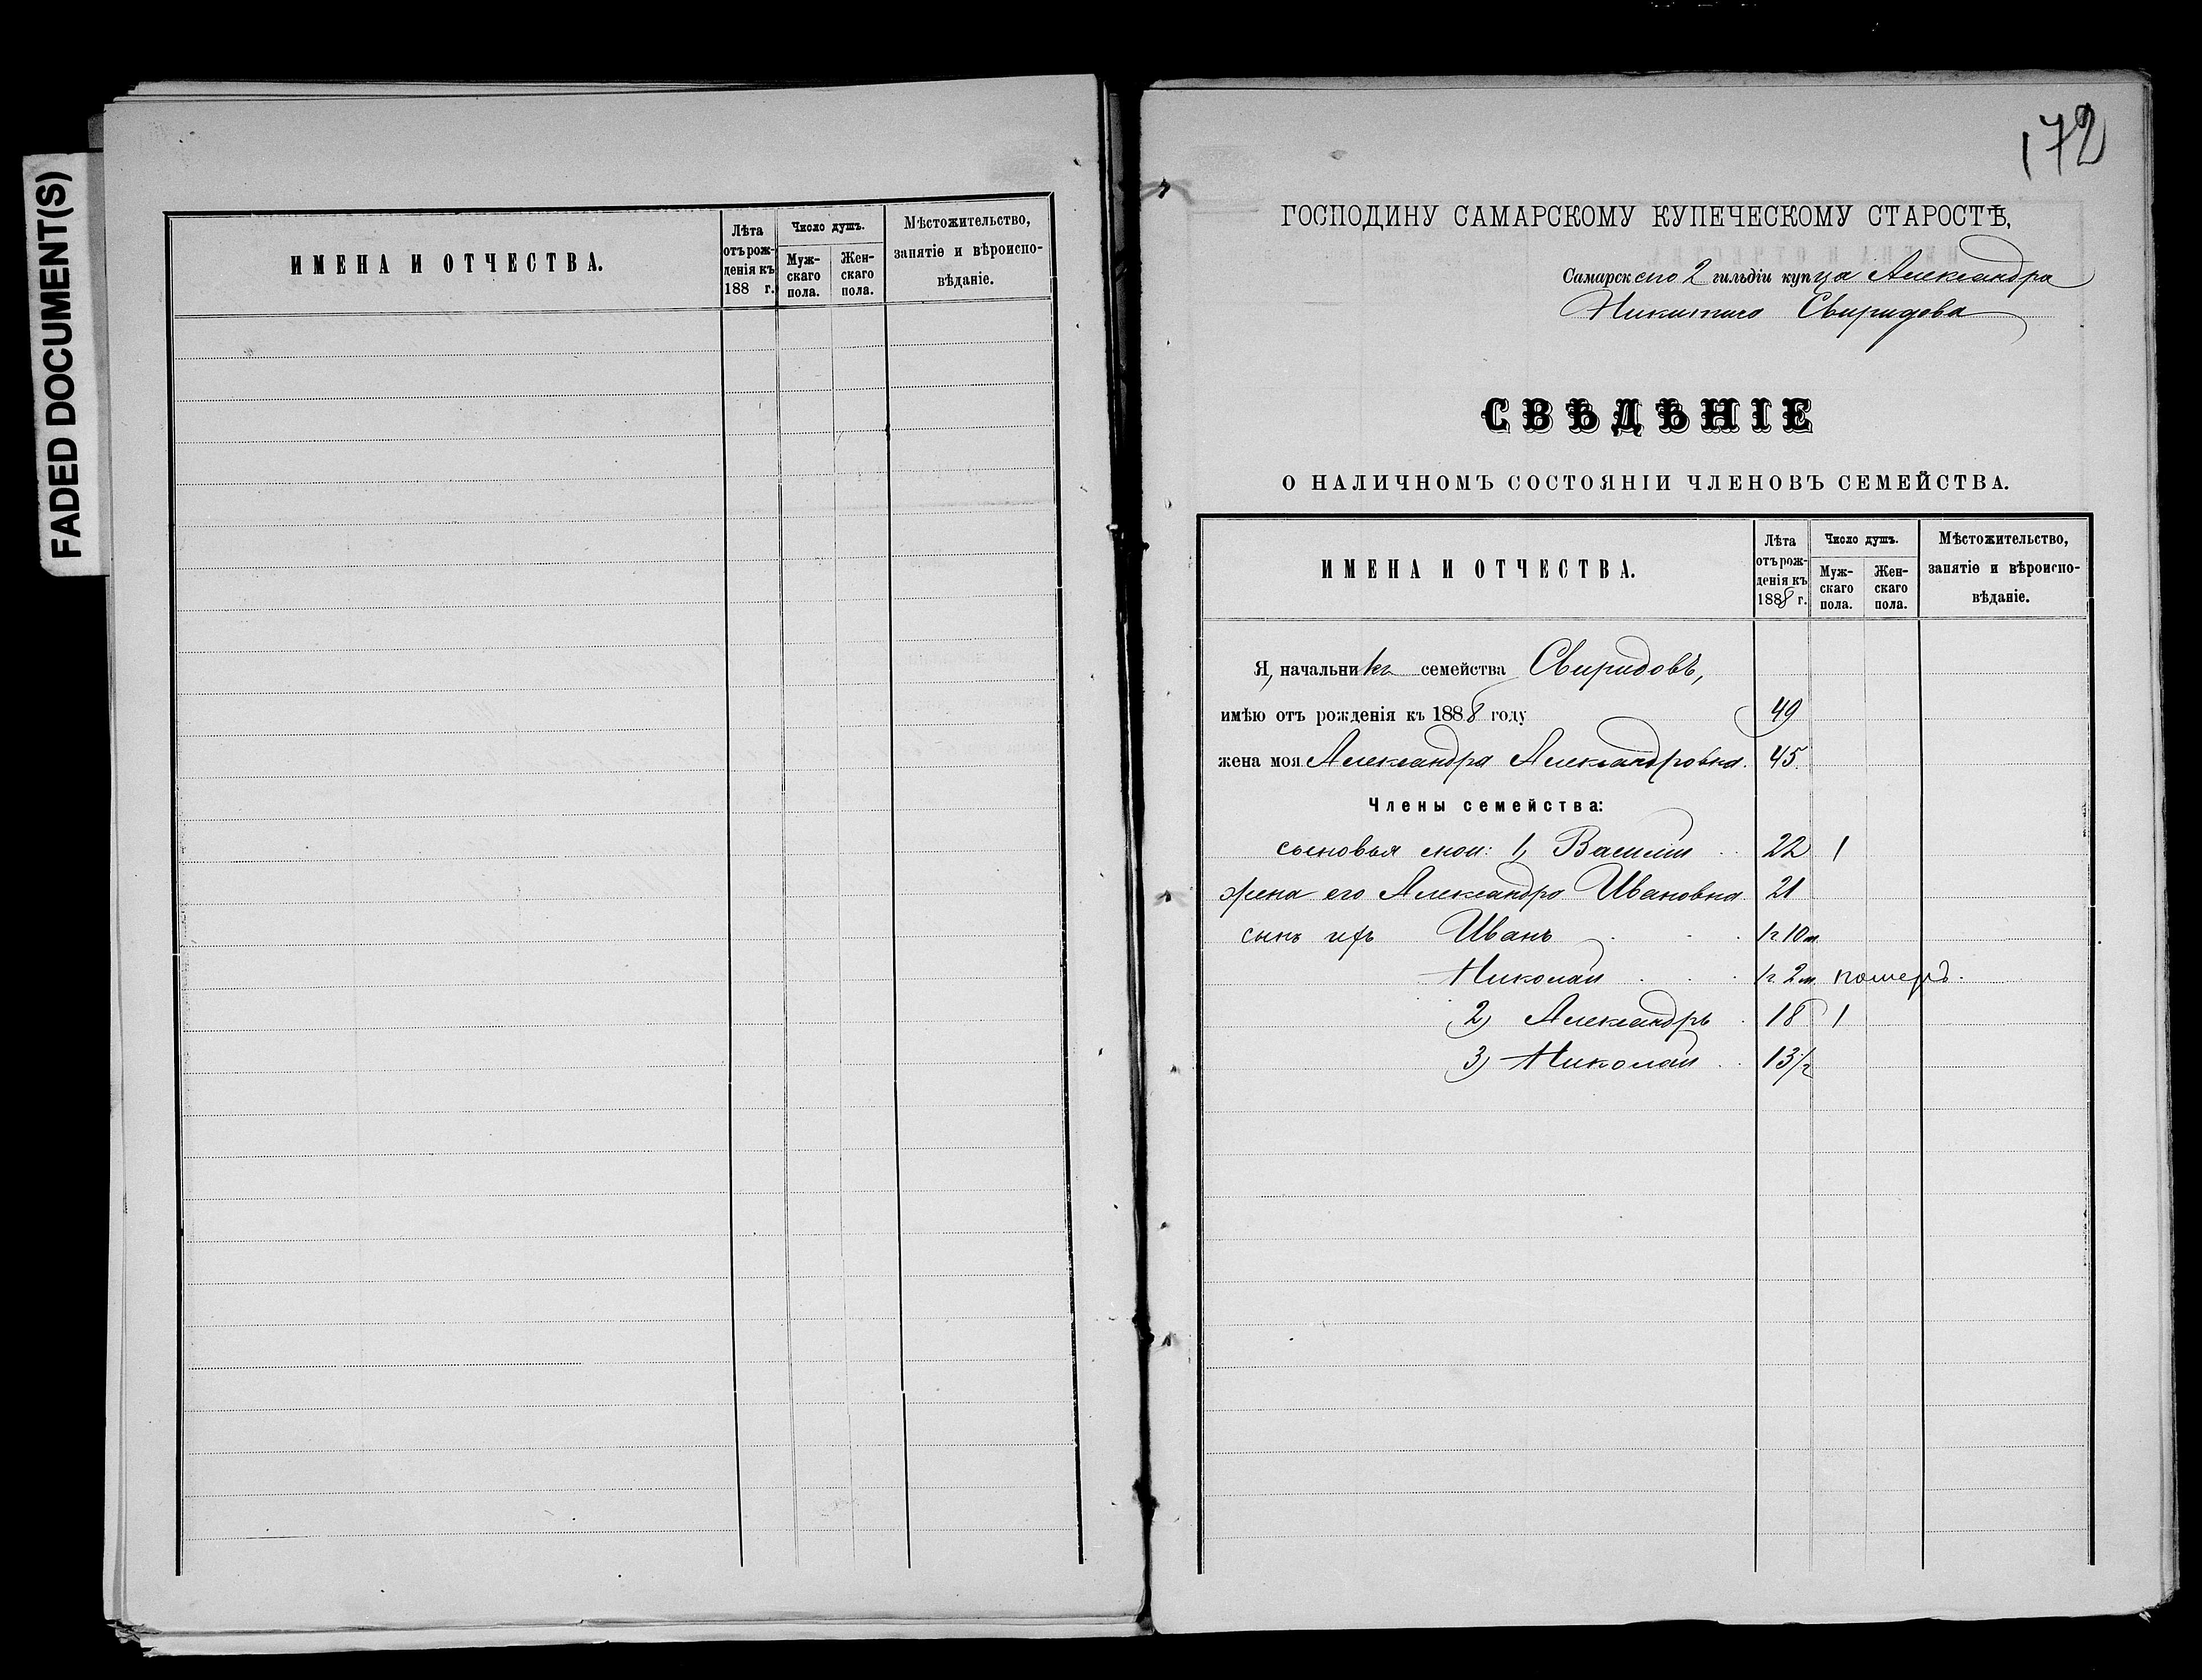 FADED DOCUMENT(S)
ИМЕНА И ОТЧЕСТВА.
Лѣта отъ рожденія къ 188 г.
Число душъ.
Мужскаго пола.
Женскаго пола.
Мѣстожительство, занятіе и вѣроисповѣданіе.
172
ГОСПОДИНУ САМАРСКОМУ КУПЕЧЕСКОМУ СТАРОСТѢ,
Самарскаго 2 гильдіи купца Александра
Никитича Свиридова
СВѢДѢНІЕ
О НАЛИЧНОМЪ СОСТОЯНІИ ЧЛЕНОВЪ СЕМЕЙСТВА.
ИМЕНА И ОТЧЕСТВА.
Лѣта отъ рожденія къ 1888 г.
Число душъ.
Мужскаго пола.
Женскаго пола.
Мѣстожительство, занятіе и вѣроисповѣданіе.
Я, начальникъ семейства Свиридовъ,
имѣю отъ рожденія къ 1888 году 49
жена моя Александра Александровна. 45
Члены семейства:
сыновья мои: 1, Василій 22 1
жена его Александра Ивановна 21
сынъ ихъ Иванъ 1г 10м.
Николай 1г. 2м. померъ.
2) Александръ 18 1
3) Николай 13 1/2